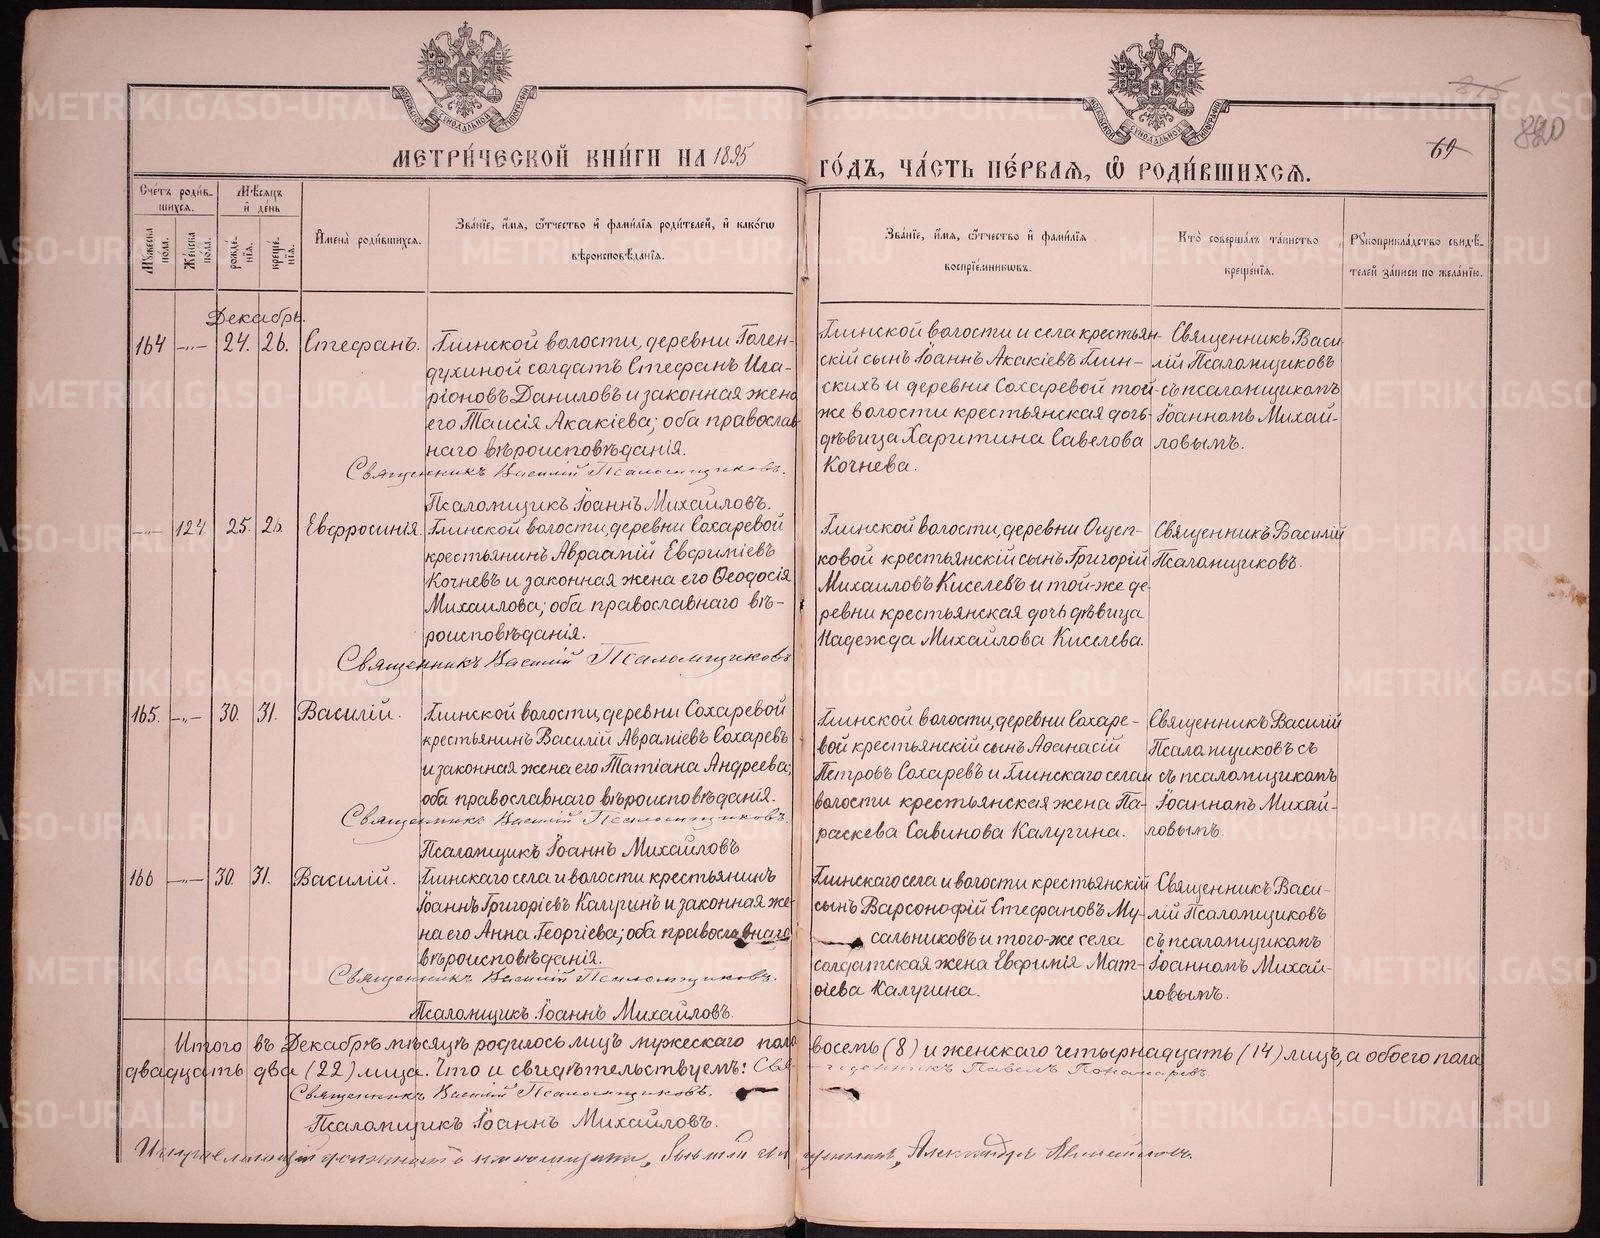 МЕТРИ́ЧЕСКОЙ КНИ́ГИ НА 1895 ГО́ДЪ, ЧА́СТЬ ПЕ́РВАЯ, Ѡ РОДИ́ВШИХСЯ.
МОСКОВСКОЙ СѴНОДАЛЬНОЙ ТИПОГРАФІИ
МОСКОВСКОЙ СѴНОДАЛЬНОЙ ТИПОГРАФІИ
69
820
Сче́тъ роди́вшихся.
Мꙋжеска пола.
Же́нска пола.
Мѣсяцъ и́ де́нь
рожде́нїя.
креще́нїя.
И҆мена̀ роди́вшихся.
Зва́нїе, и҆́мя, ѻ҆́тчество и҆ фами́лїя роди́телей, и҆ како́гѡ
вѣроисповѣ́данїя.
Зва́нїе, и҆́мя, ѻ҆́тчество и҆ фами́лїя
воспрїе́мникѡвъ.
Кто̀ соверша́лъ та́инство
креще́нїя.
Рꙋкоприкла́дство свидѣ́-
телей за́писи по жела́нїю.
Декабрь.
164 -„- 24. 26. Стефанъ.
Глинской волости, деревни Голен-
духиной солдатъ Стефанъ Ила-
ріоновъ Даниловъ и законная жена
его Таисія Акакіева; оба православ-
наго вѣроисповѣданія.
Священникъ Василій Псаломщиковъ.
Псаломщикъ Іоаннъ Михайловъ.
Глинской волости и села крестьян-
скій сынъ Іоаннъ Акакіевъ Глин-
скихъ и деревни Сохаревой той-
же волости крестьянская дочь
дѣвица Харитина Савелова
Кочнева.
Священникъ Васи-
лій Псаломщиковъ
съ псаломщикомъ
Іоанномъ Михай-
ловымъ.
-„- 124 25. 26. Евфросинія.
Глинской волости, деревни Сохаревой
крестьянинъ Авраамій Евфиміевъ
Кочневъ и законная жена его Ѳеодосія
Михаилова; оба православнаго вѣ-
роисповѣданія.
Священникъ Василій Псаломщиковъ
Глинской волости, деревни Ощеп-
ковой крестьянскій сынъ Григорій
Михаиловъ Киселевъ и той-же де-
ревни крестьянская дочь дѣвица
Надежда Михайлова Киселева.
Священникъ Василій
Псаломщиковъ.
165. -„- 30. 31. Василій.
Глинской волости, деревни Сохаревой
крестьянинъ Василій Авраміевъ Сохаревъ
и законная жена его Татіана Андреева;
оба православнаго вѣроисповѣданія.
Священникъ Василій Псаломщиковъ.
Псаломщикъ Іоаннъ Михайловъ
Глинской волости, деревни Сохаре-
вой крестьянскій сынъ Аѳанасій
Петровъ Сохаревъ и Глинскаго села и
волости крестьянская жена Па-
раскева Савинова Калугина.
Священникъ Василій
Псаломщиковъ съ
съ псаломщикомъ
Іоанномъ Михай-
ловымъ.
166 -„- 30. 31. Василій.
Глинскаго села и волости крестьянинъ
Іоаннъ Григоріевъ Калугинъ и законная же-
на его Анна Георгіева; оба православнаго
вѣроисповѣданія.
Священникъ Василій Псаломщиковъ.
Псаломщикъ Іоаннъ Михайловъ.
Глинскаго села и волости крестьянскій
сынъ Варсонофій Стефановъ Му-
сальниковъ и того-же села
солдатская жена Евфимія Мат-
ѳіева Калугина.
Священникъ Васи-
лій Псаломщиковъ
съ псаломщикомъ
Іоанномъ Михай-
ловымъ.
Итого въ Декабрѣ мѣсяцѣ родилось лицъ мужескаго пола восемь (8) и женскаго четырнадцать (14) лицъ, а обоего пола
двадцать два (22) лица. Что и свидѣтельствуемъ: Священникъ Павелъ Пономаревъ.
Священникъ Василій Псаломщиковъ.
Псаломщикъ Іоаннъ Михайловъ.
должность Александръ
METRIKI.GASO-URAL.RU